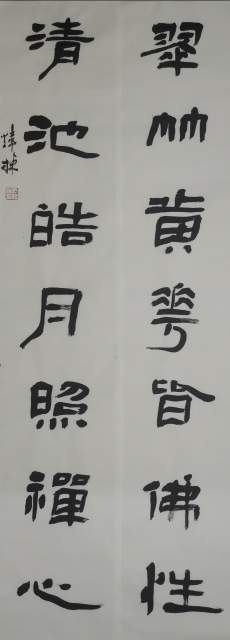 翠竹黄花皆佛性
清池皓月照禪心